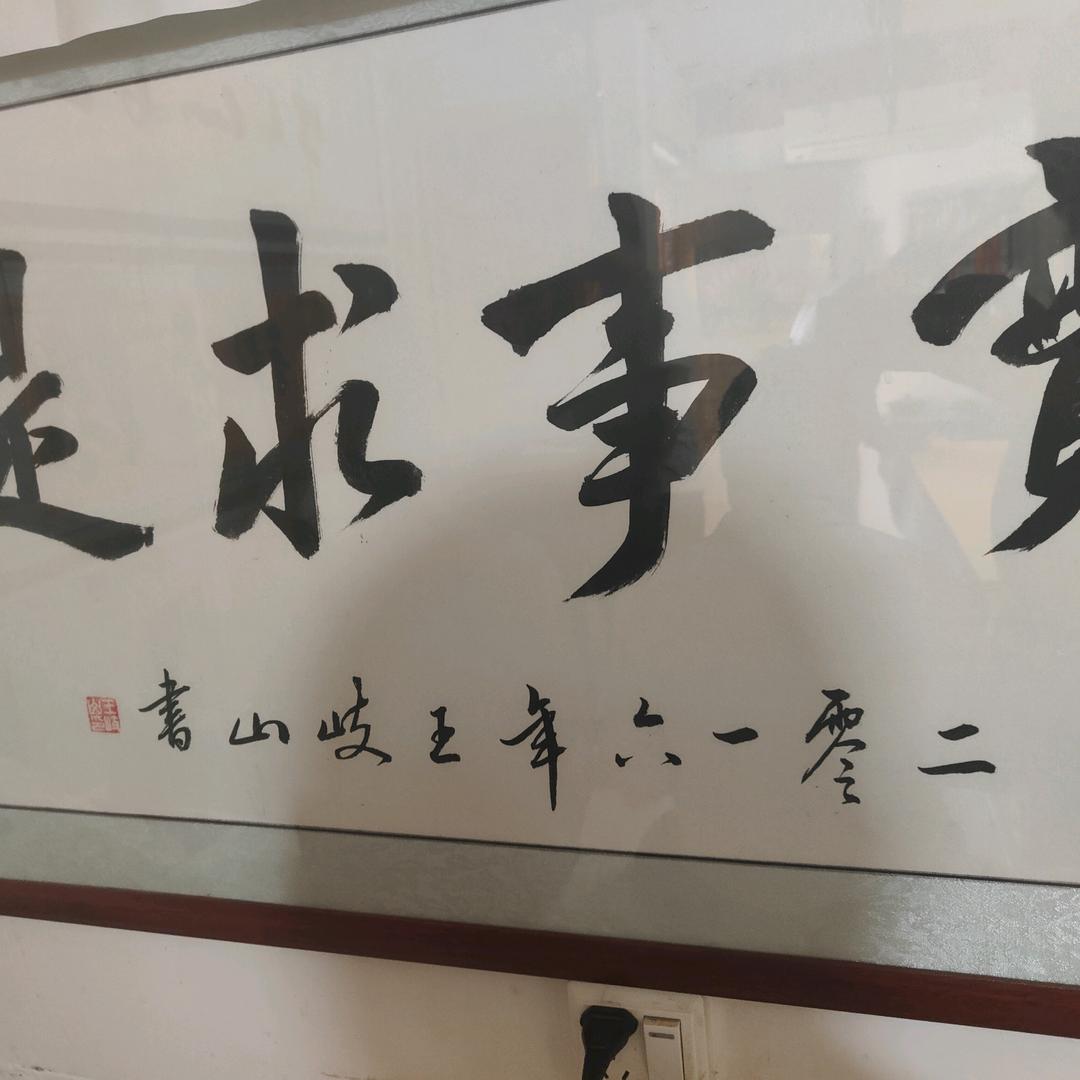 實事求是
二零一六年王岐山書